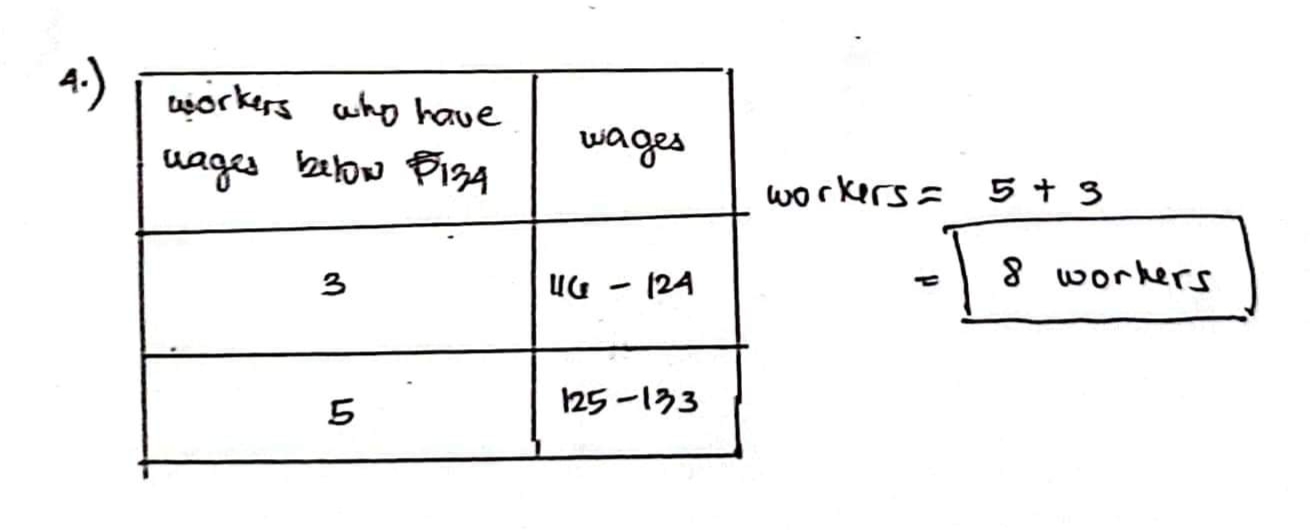 4.)
workers who have
wages below ₱134
wages
3
116 - 124
5
125-133
workers = 5 + 3
= 8 workers